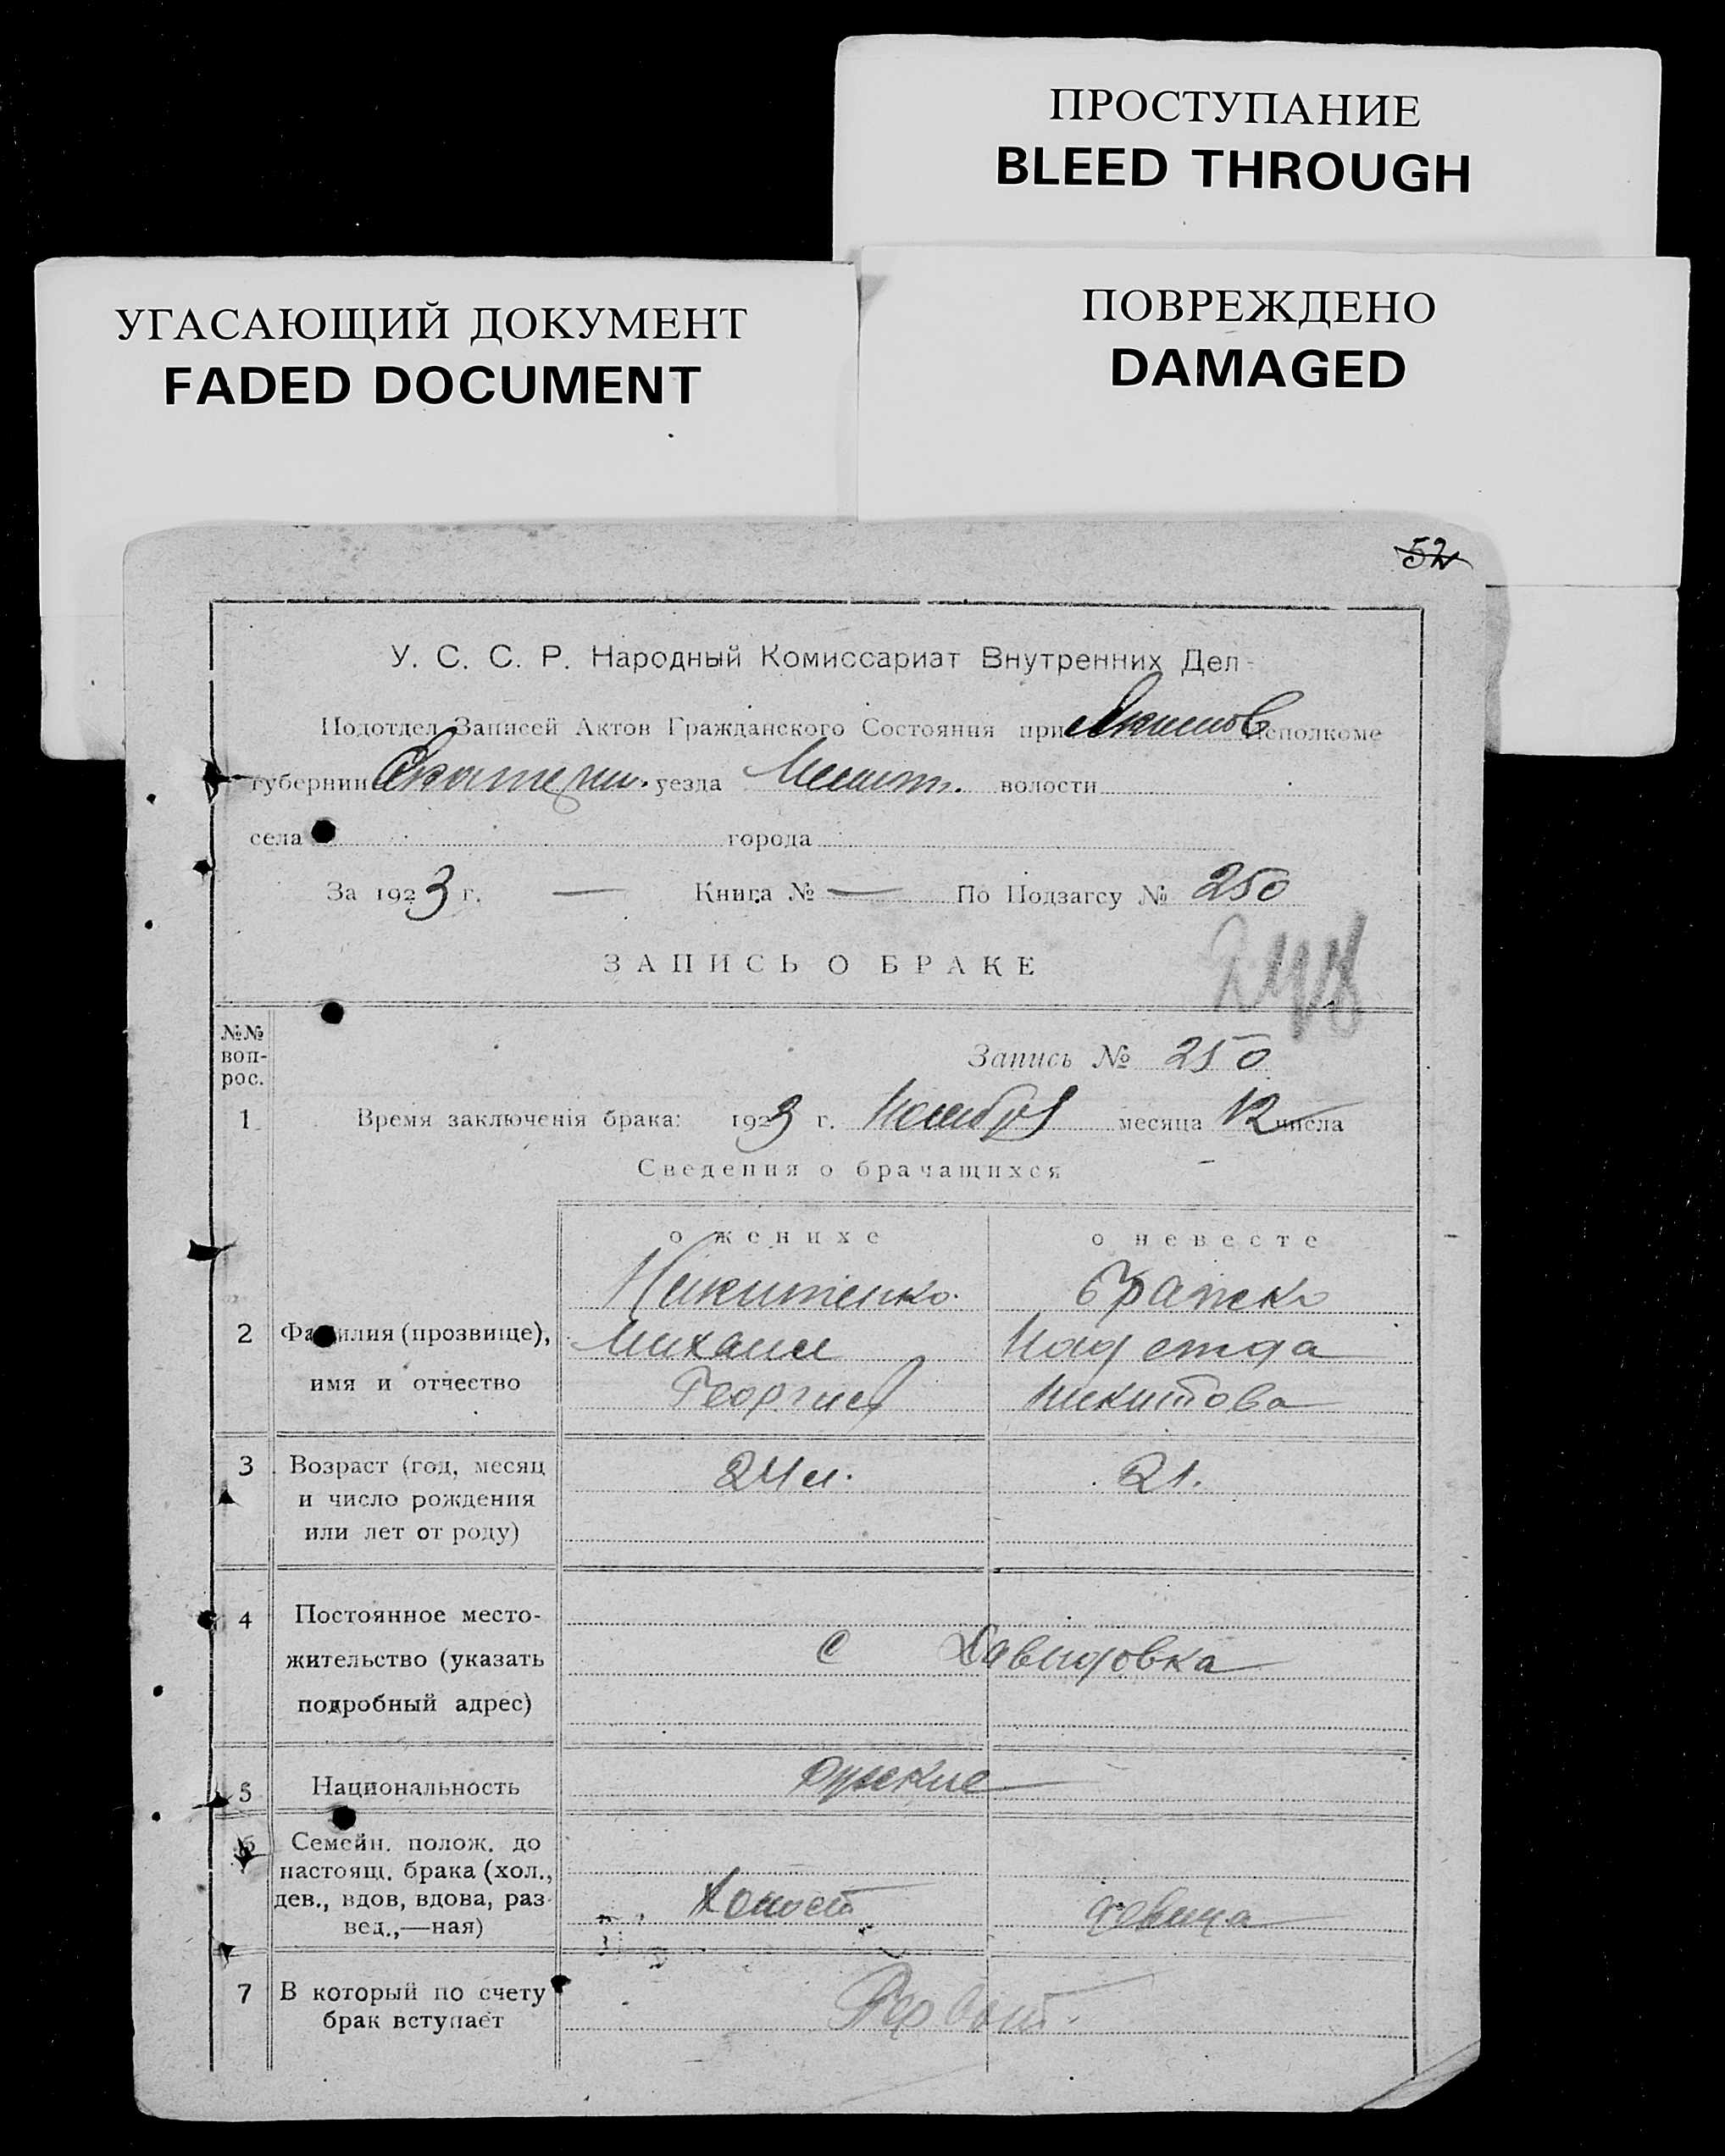 ПРОСТУПАНИЕ
BLEED THROUGH
УГАСАЮЩИЙ ДОКУМЕНТ
FADED DOCUMENT
ПОВРЕЖДЕНО
DAMAGED
52
У. С. С. Р. Народный Комиссариат Внутренних Дел
Подотдел Записей Актов Гражданского Состояния при Акимов Исполкоме
губернии Екатерин. уезда Мелит. волости
села города
За 1923 г. — Книга № — По Подзагсу № 250
ЗАПИСЬ О БРАКЕ
№№ вопрос.
Запись № 250
1 Время заключенія брака: 1923 г. Ноября месяца 12 числа
Сведения о брачащихся
о женихе о невесте
Никитенко Бражко
2 Фамилия (прозвище), Михаил Надежда
имя и отчество Георгиев Никитова
3 Возраст (год, месяц 24 л. 21.
и число рождения
или лет от роду)
4 Постоянное место-
жительство (указать с Давидовка
подробный адрес)
5 Национальность русские
6 Семейн. полож. до
настоящ. брака (хол.,
дев., вдов, вдова, раз- Холост девица
вед.,—ная)
7 В который по счету
брак вступает Первый